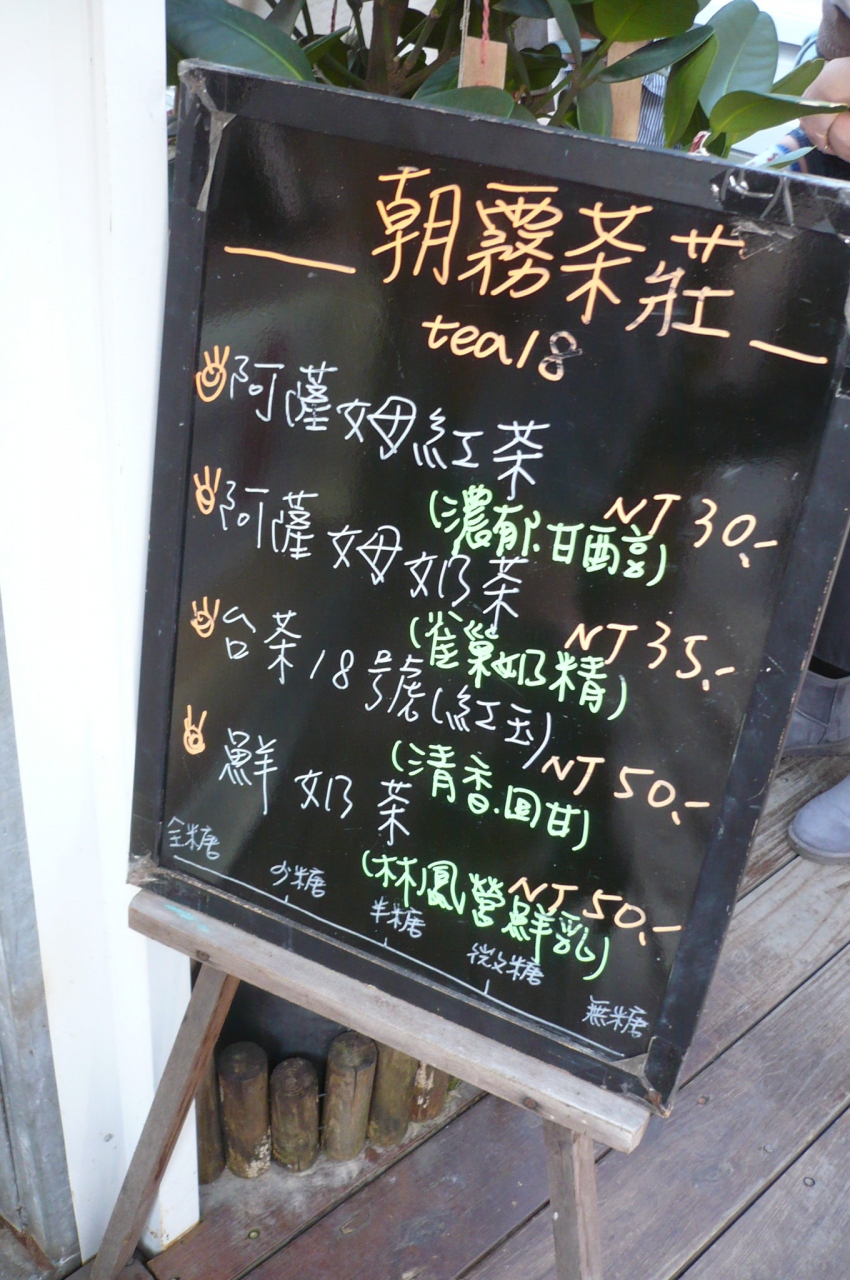 朝霧茶莊
tea18
阿薩姆紅茶
(濃郁.甘醇) NT 30.-
阿薩姆奶茶
(雀巢奶精) NT 35.-
台茶18號(紅玉)
(清香.回甘) NT 50.-
鮮奶茶
(林鳳營鮮乳) NT 50.-
全糖 少糖 半糖 微糖 無糖